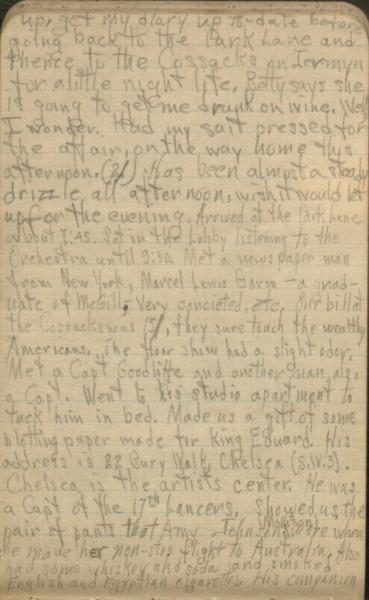 up, get my diary up to-date before
going back to the Park Lane and
thence to the Cossacks on Jermyn
for a little night life. Betty says she
is going to get me drunk on wine. Well
I wonder. Had my suit pressed for
the affair, on the way home this
afternoon. (2/) has been almost a steady
drizzle all afternoon, wish it would let
up for the evening. Arrived at the Park Lane
about 7:45. Sat in the Lobby listening to the
Orchestra until 9:30. Met a news paper man
from New York, Marcel Lewis Baron - a grad-
uate of McGill. Very concieted, etc. Our bill at
the Cossacks was 15/, they sure touch the wealthy
Americans. The floor show had a slight odor.
Met a Capt Goodliffe and another man, also
a Capt. Went to his studio apartment to
tuck him in bed. Made us a gift of some
blotting paper made for King Edward. His
address is 22 Bury Walk, Chelsea (S.W.3).
Chelsea is the artists center. He was
a Capt of the 17th Lancers, showed us the
pair of pants that Amy Johnson Mollison wore when
she made her non-stop flight to Australia. Also
had some whiskey and soda and smoked
English and Egyptian cigarettes. His companion